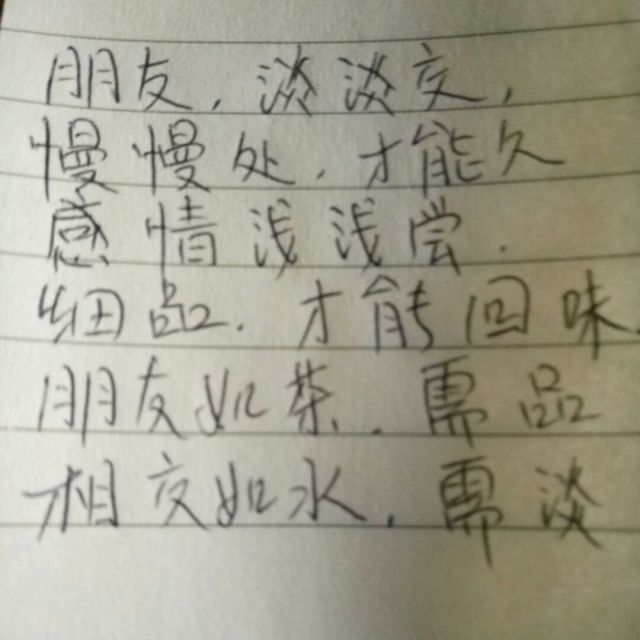 朋友,淡淡交,
慢慢处,才能久
感情浅浅尝.
细品.才能回味.
朋友如茶.需品
相交如水.需淡